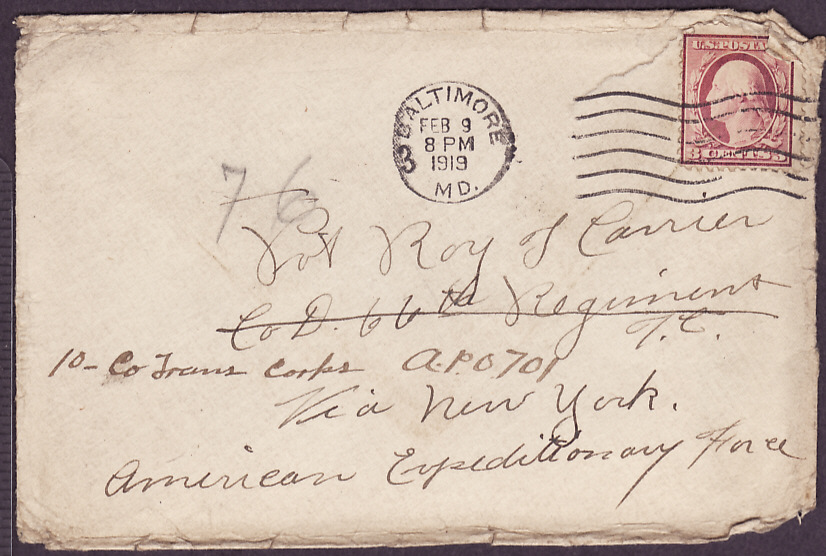 U.S. POSTA
3 CENTS 3
BALTIMORE
FEB 9
8 PM
1919
MD.
3
76
Pvt Roy J Carrier
Co D. 66th Regiment
T.C.
10- Co Trans Corps A.P.O 701
Via New York.
American Expeditionary Force